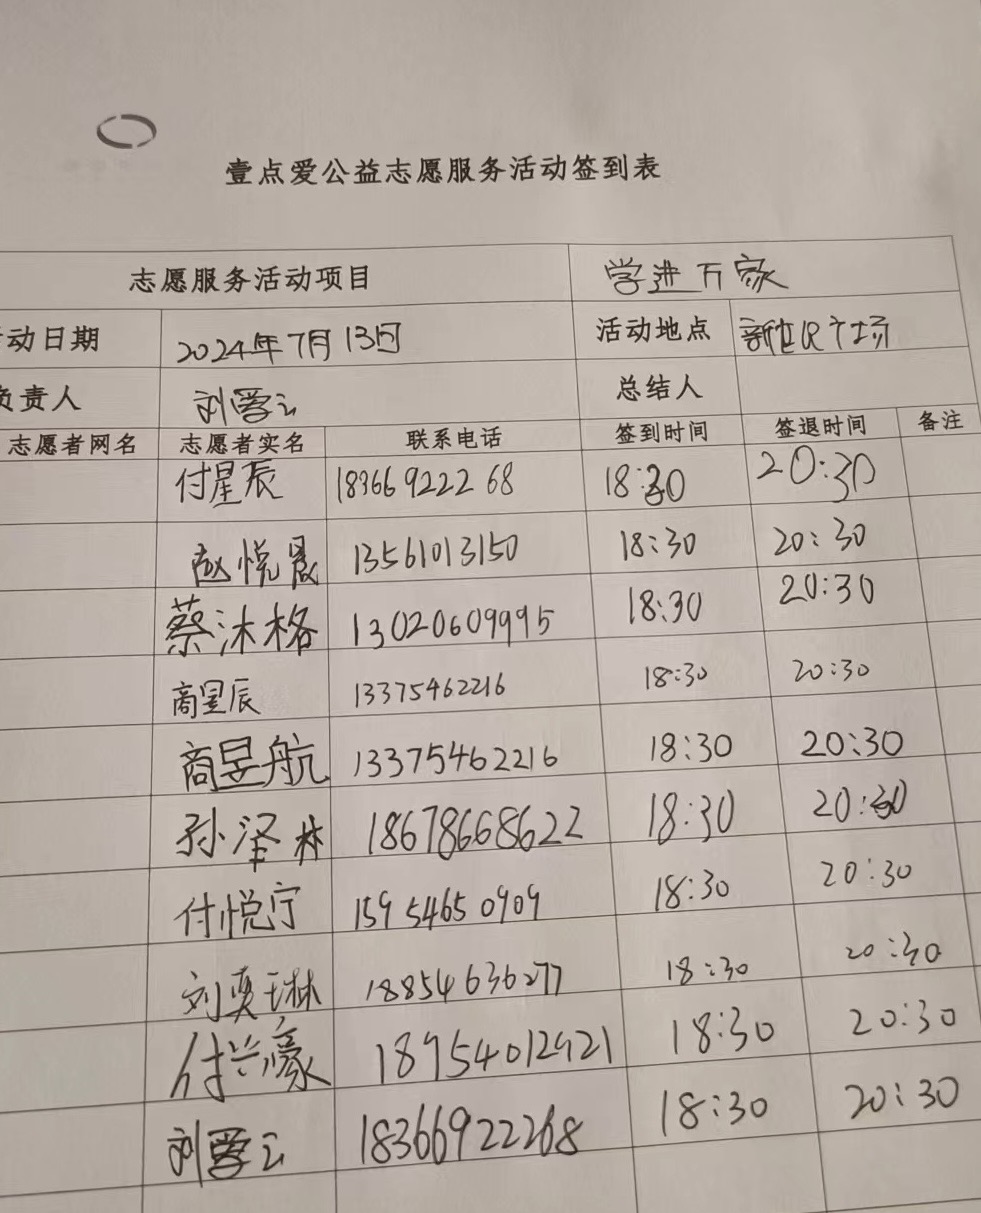 壹点爱公益志愿服务活动签到表
志愿服务活动项目 学进万家
动日期 2024年7月13日 活动地点 新世纪广场
负责人 刘雪云 总结人
志愿者网名 志愿者实名 联系电话 签到时间 签退时间 备注
付星辰 18366922268 18:30 20:30
赵悦晟 13561013150 18:30 20:30
蔡沐格 13020609995 18:30 20:30
商昱辰 13375462216 18:30 20:30
商昱航 13375462216 18:30 20:30
孙泽林 18678668622 18:30 20:30
付悦宁 15954650909 18:30 20:30
刘奕琳 18854636277 18:30 20:30
付兴豪 18954012921 18:30 20:30
刘雪云 18366922268 18:30 20:30